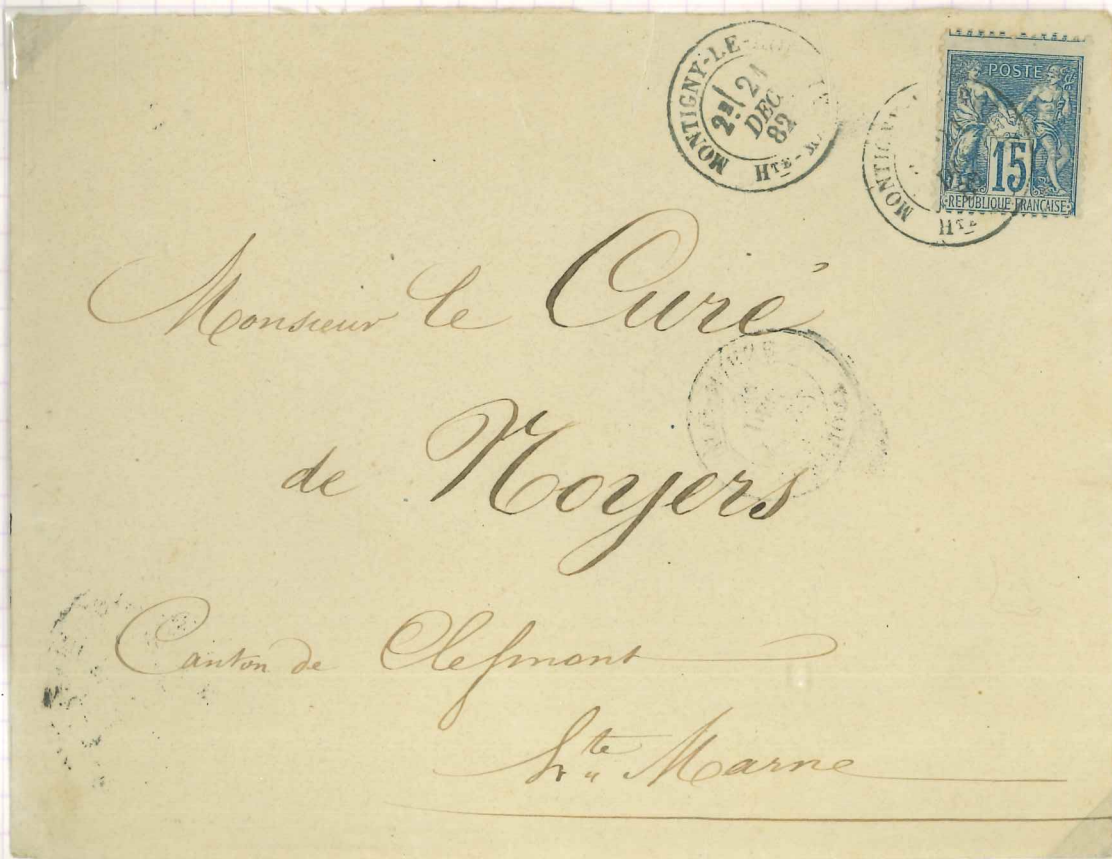 MONTIGNY-LE-ROI
2E/ 21
DEC
82
HTE-
MONTIG
HTE
POSTE
15
REPUBLIQUE FRANCAISE
Monsieur le Curé
de Noyers
Canton de Clefmont
hte Marne